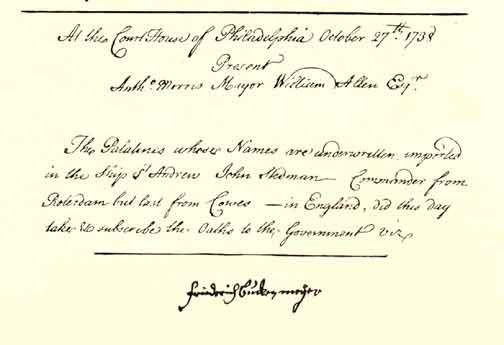 At the Court House of Philadelphia October 27th: 1738
Present
Antho Morris Mayor William Allen Esqr.
The Palatines whose Names are underwritten, imported
in the Ship St Andrew John Stedman — Commander from
Roterdam but last from Cowes — in England, did this day
take & subscribe the Oaths to the Government viz
Friederich